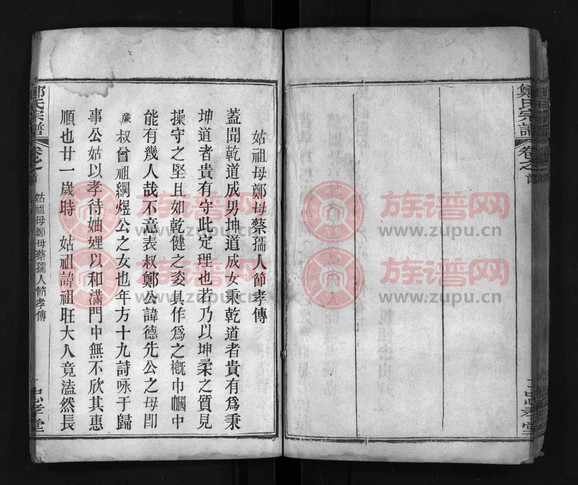 姑祖母鄭母蔡孺人節孝傳
蓋聞乾道成男坤道成女秉乾道者貴有爲秉
坤道者貴有守此定理也若乃以坤柔之質見
操守之堅且如乾健之姿具作爲之概巾幗中
能有幾人哉不意表叔鄭公諱德先公之母卽
廉叔曾祖綱煜公之女也年方十九詩咏于歸
事公姑以孝待妯娌以和滿門中無不欣其惠
順也廿一歲時 姑祖諱祖旺大人竟溘然長
鄭氏宗譜 卷之首
姑祖母鄭母蔡孺人節孝傳
忠孝堂
鄭氏宗譜 卷之首
忠孝堂
族谱网
www.zupu.cn
族谱网
www.zupu.cn
族谱网
www.zupu.cn
族谱网
www.zupu.cn